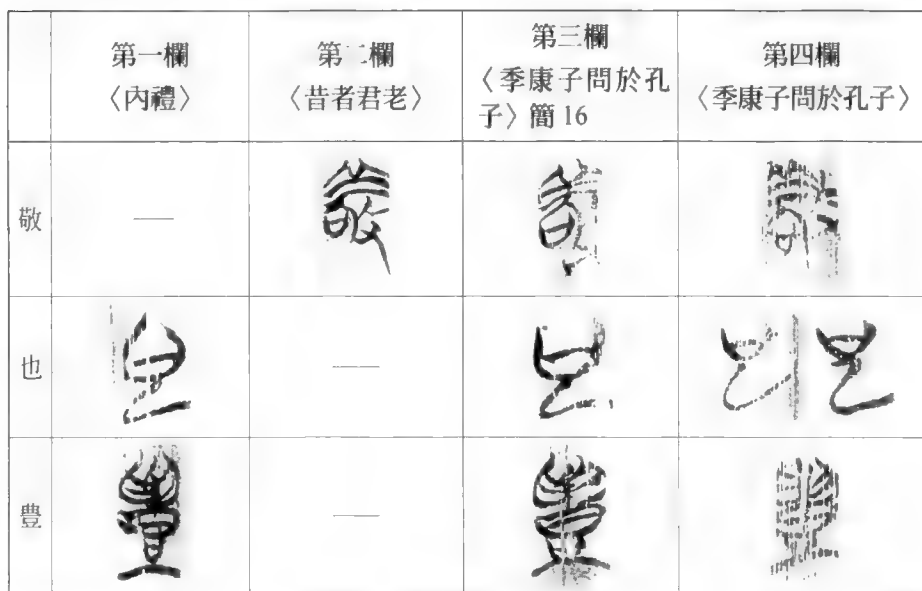 第一欄
〈內禮〉
第二欄
〈昔者君老〉
第三欄
〈季康子問於孔
子〉簡 16
第四欄
〈季康子問於孔子〉
敬
—
也
—
豊
—